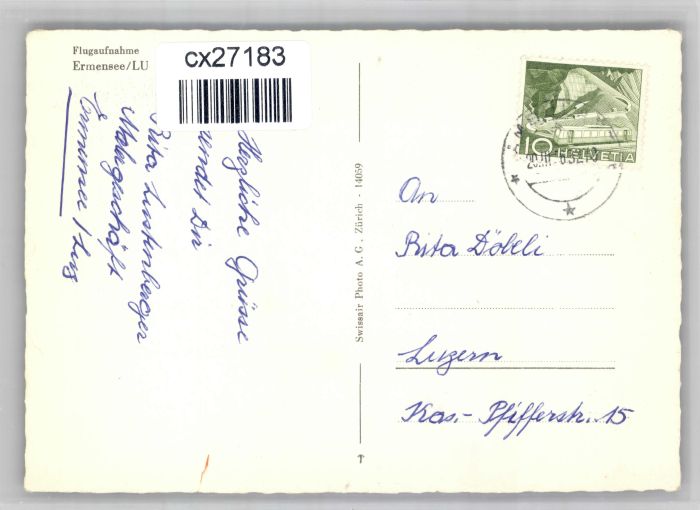 Flugaufnahme
Ermensee/LU
cx27183
Herzliche Grüsse
sendet Dir
Rita Lustenberger
Malergeschäft
Ermensee / Luz.
Swissair Photo A. G., Zürich - 14059
10 HELVETIA
An
Rita Döbeli
Luzern
Kas.- Pfifferstr. 15